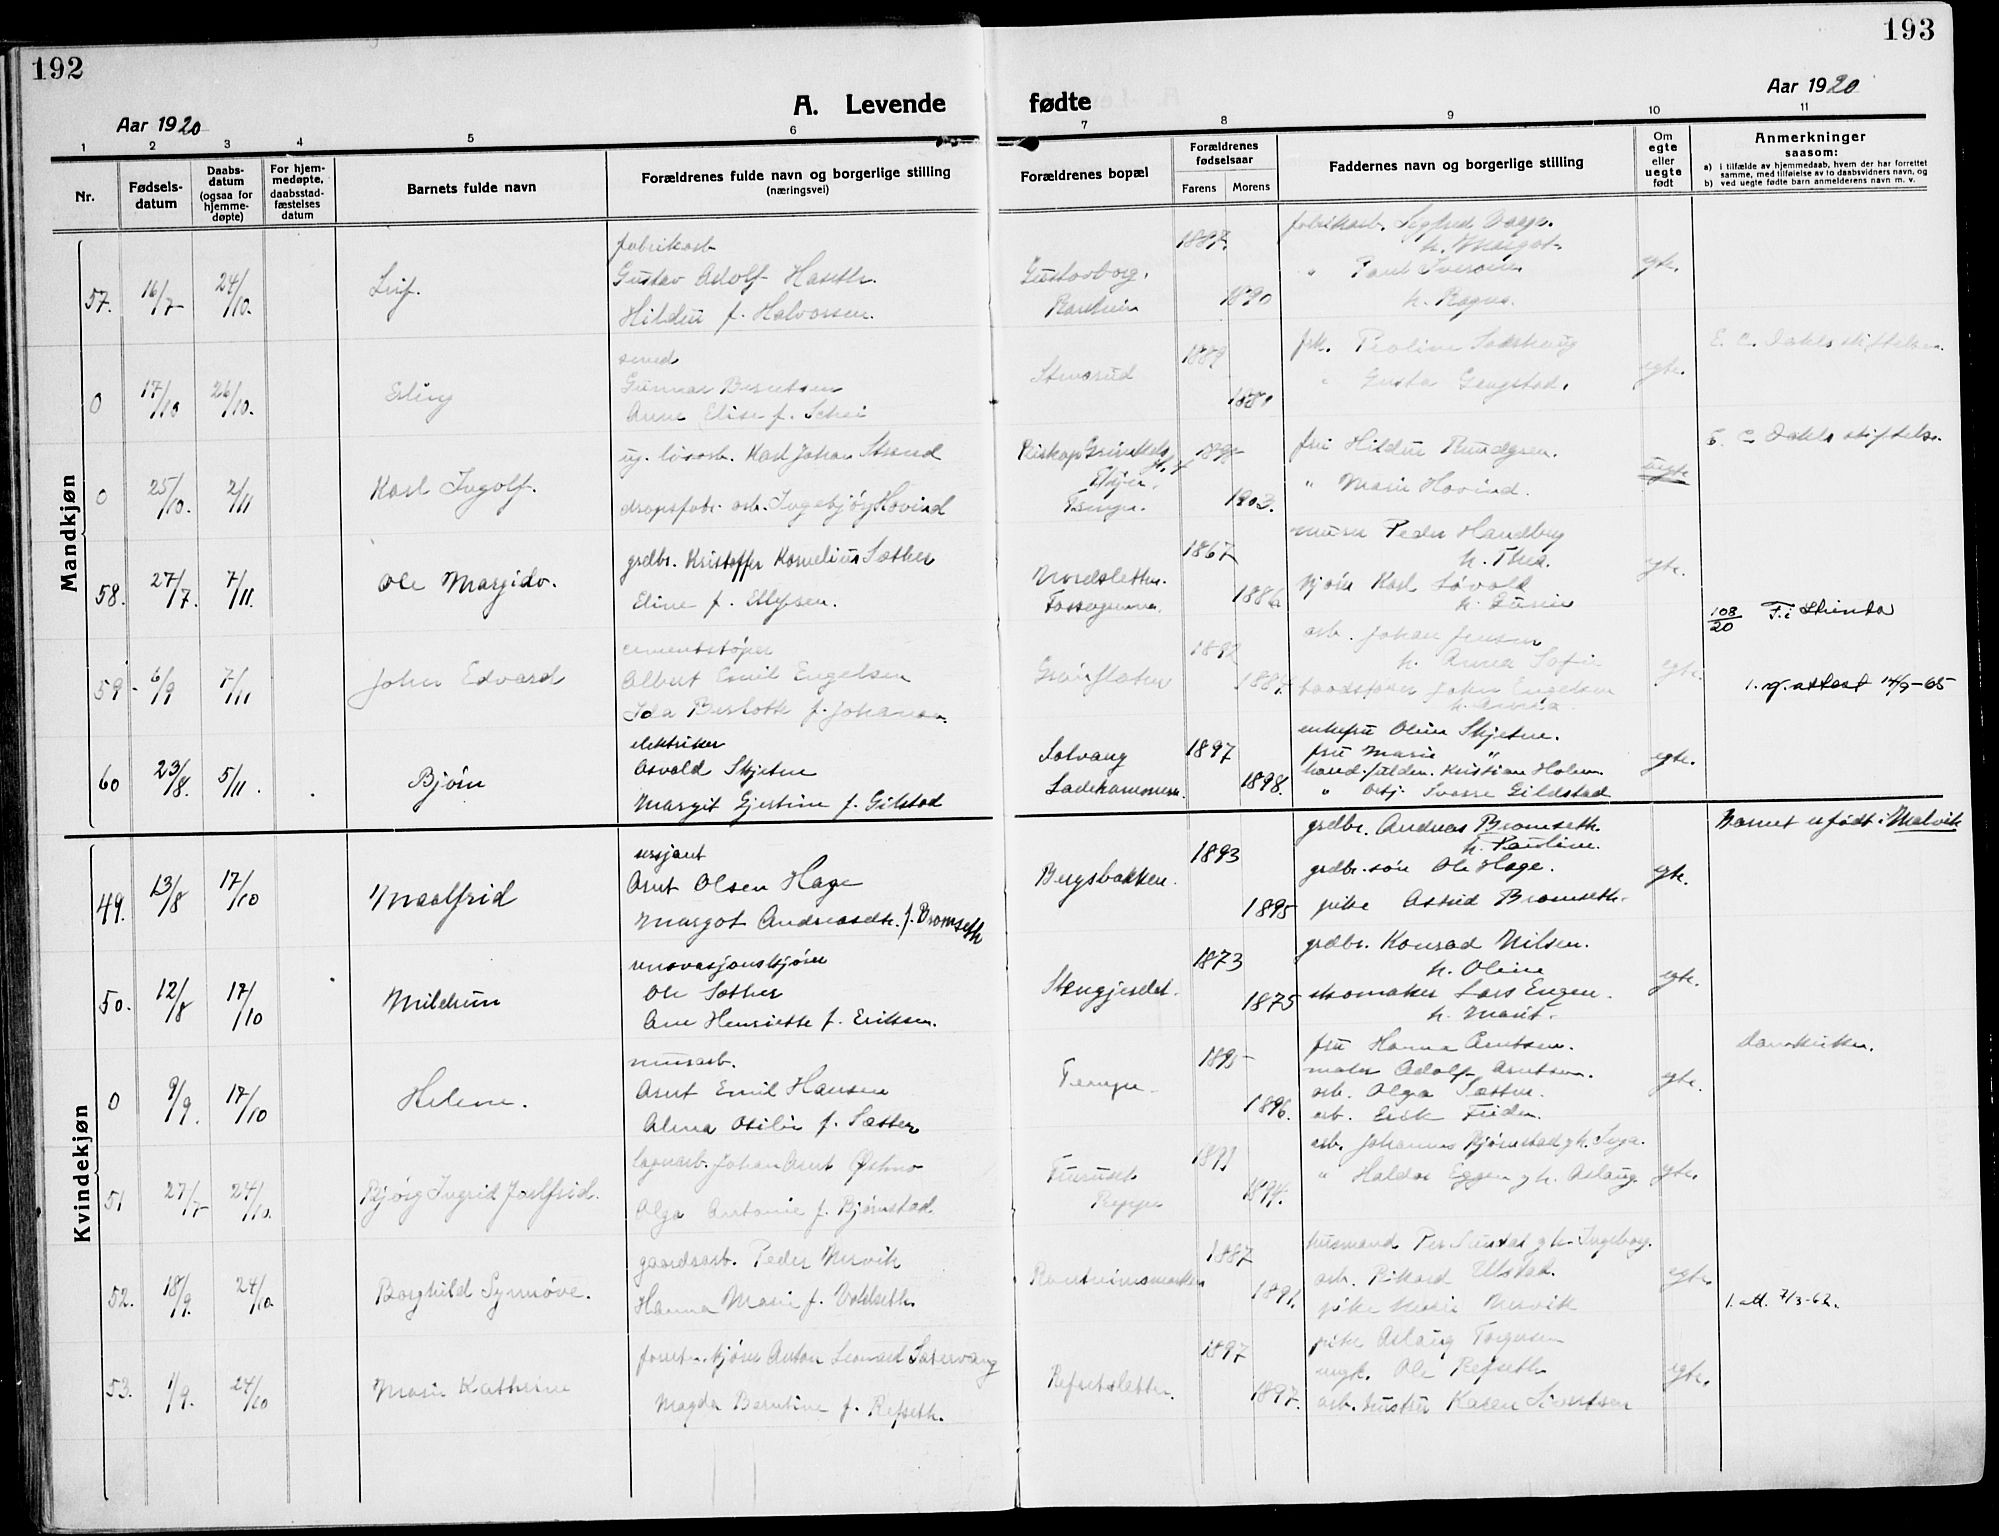 192
193
A. Levende fødte
Aar 1920
Aar 1920
1 2 3 4 5 6 7 8 9 10 11
Nr.
Fødsels-
datum
Daabs-
datum
(ogsaa for
hjemme-
døpte)
For hjem-
medøpte,
daabsstad-
fæstelses
datum
Barnets fulde navn
Forældrenes fulde navn og borgerlige stilling
(næringsvei)
Forældrenes bopæl
Forældrenes
fødselsaar
Farens Morens
Faddernes navn og borgerlige stilling
Om
egte
eller
uegte
født
Anmerkninger
saasom:
a) i tilfælde av hjemmedaab, hvem der har forrettet
samme, med tilføielse av to daabsvidners navn, og
b) ved uegte fødte barn anmelderens navn m. v.
Mandkjøn
57. 16/7 24/10. Leif.
fabrikarb.
Gustav Adolf
Hildur f. Halvorsen.
Gustavborg.
1887. 1890
fabrikarb.
h. Margot
" Paul Iversen
h. Ragna.
egte.
0 17/10 26/10. Erling
smed
Gunnar Berntsen
Anne Elise f. Schei
Stensrud
1889 1880
frk. Pauline
" Gusta
egte.
E. C. Dahls stiftelse.
0 25/10. 2/11 Karl Ingolf.
ug. løsarb. Karl Johan Strand
dropsfabr. arb. Ingebjørg Hovind
1903.
fru Hildur
" Marie Hovind.
uegte
E. C. Dahls stiftelse.
58. 27/7. 7/11. Ole Margido.
grdbr. Kristoffer Kornelius Sæther
Eline f. Ellefsen.
Nordsletten.
1867 1886
murer Peder Handberg
h. Thea.
Karl Løvold
egte.
108/20 F. i Strinda
59 6/9 7/11 John Edvard
cementstøper
Albert Emil Engelsen
Ida Berloth f. Johansen.
1892 1887.
arb. Johan Jensen
h. Anna Sofie
John Engelsen
egte.
1. g. attest 14/9-65
60 23/8. 5/11. Bjørn
elektriker
Osvald Skjetne
Margit Gjertine f. Gilstad
Solvang
Ladehammeren.
1897 1898.
enkefru Oline Skjetne.
fru Marie "
Kristian Holem.
" Sverre Gildstad
egte.
Kvindekjøn
49. 13/8 17/10 Maalfrid
sersjant
Arnt Olsen Hage
Margot Andreasdtr. f. Bromseth
Bergsbakken.
1893 1895
grdbr. Andreas Bromseth.
h. Pauline.
grdbr. søn Ole Hage.
pike Astrid Bromseth.
egte.
Barnet er født i Malvik
50. 12/8 17/10 Mildrun
renovasjonskjører
Ole Sæther
Ane Henriette f. Eriksen.
Stengjerdet.
1873 1875
grdbr. Konrad Nilsen.
h. Oline
skomaker Lars Engen.
h. Marit.
egte.
0 9/9. 17/10 Helene.
murarb.
Arnt Emil Hansen
Alma Otilie f. Sæther
Tempe
1895 1896.
fru Hanna Arntsen.
maler Adolf Arntsen.
arb. Olga Sæther.
arb. Erik
egte.
51 27/7 24/10. Bjørg Ingrid Jarlfrid.
Johan Arnt Østmo
Olga Antonie f. Bjørnstad
Furuset
1891 1894.
arb. Johannes Bjørnstad & h. Inga.
" Haldor Eggen & h. Aslaug
egte.
52. 18/9. 24/10. Borghild Synnøve.
gaardsarb. Peder Nervik
Hanna Marie f. Voldseth.
1887 1891.
husmand & h. Ingeborg.
arb. Rikard Ulstad.
pike Marie Nervik
egte.
1. att. 7/3-62.
53. 1/9. 24/10 Marie Kathrine
Anton Leonard Sætervang
Magda Berntine f. Refseth.
Refsetsletten.
1897 1897.
pike Aslaug Torgersen
ungk. Ole Refseth
arb. hustru Karen Sivertsen
egte.